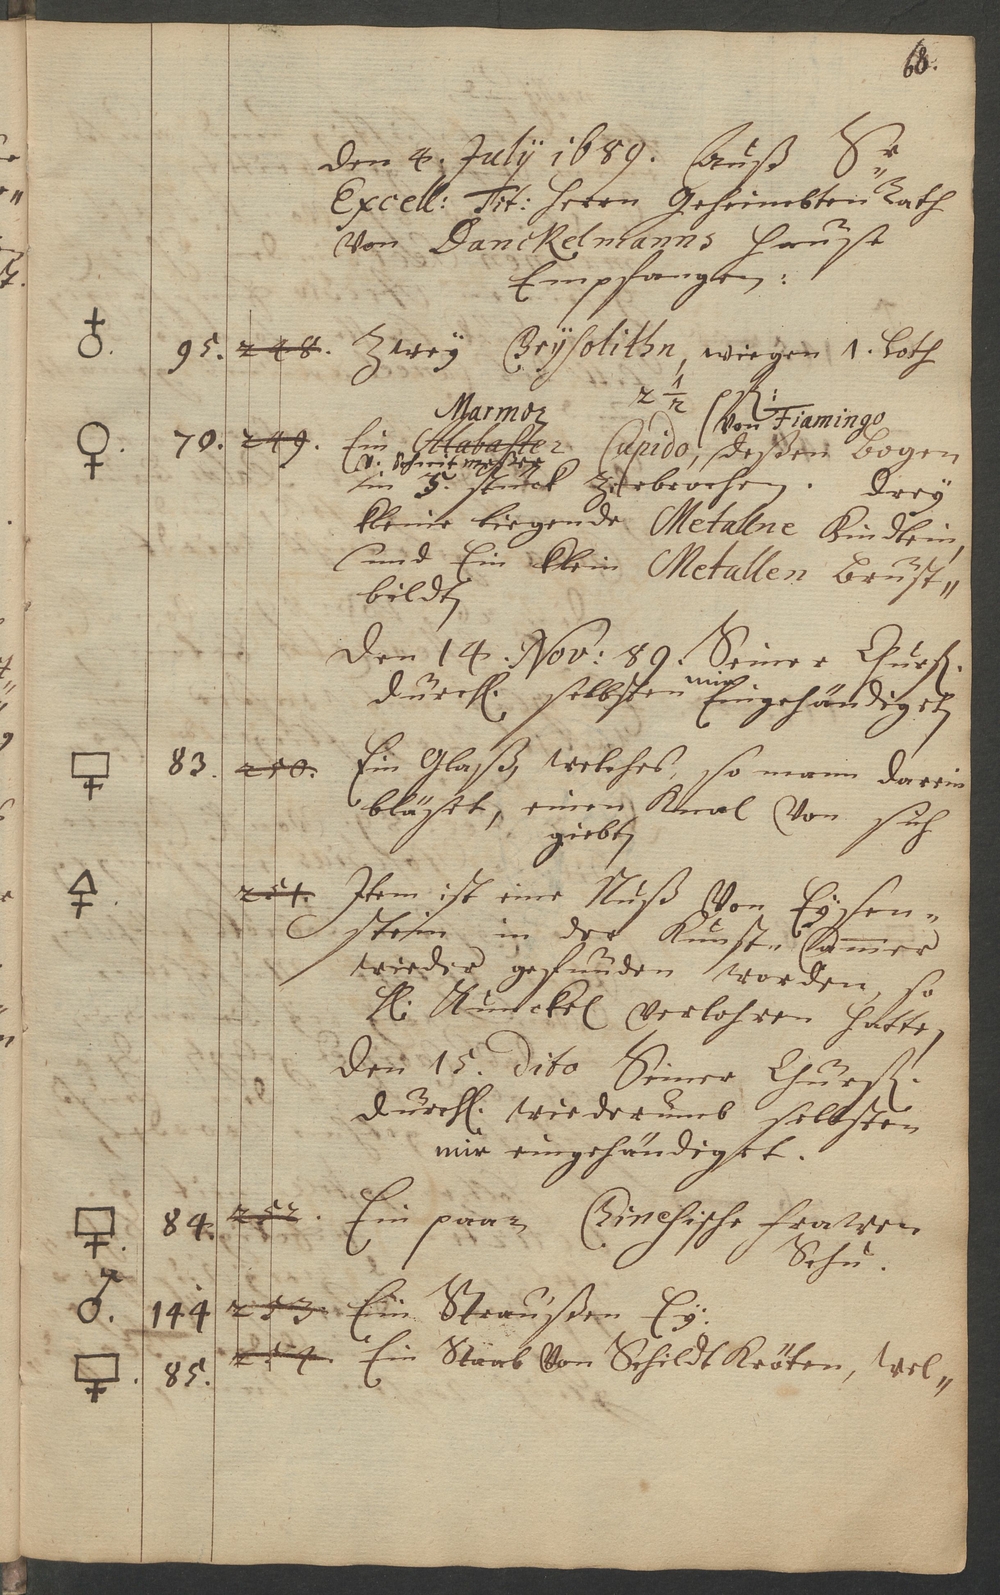 68.
Den 4. Julÿ 1689. Auß Sr
Excell: Tit: Herrn Geheimbten Rath
Von Danckelmanns Hause
Empfangen:
95. 248. Zweÿ Crÿsolithn, wiegen 1. Loth
2 1/2
Marmor von Fiamingo
70. 249. Ein Alabaster Cupido, deßen Bogen
in 3. stück zerbrochen. Dreÿ
kleine liegende Metallne Kindlein,
und Ein klein Metallen Brust„
bildt
Den 14. Nov: 89. Seiner Churfl.
mir
Durchl. selbsten Eingehändiget
83. 250. Ein Glaß, welches, so mann darein
bläset, einen Knal Von sich
giebt
251. Item ist eine Nuß Von Eÿsen-
stein in der Kunst-Cammer
wieder gefunden worden, so
H. Kunckel verlohren hatte,
Den 15. Dito Seiner Churfl.
Durchl. wiederumb selbsten
mir eingehändiget.
84. 252. Ein paar Chinesische Frawen
Schu.
144 253 Ein Straußen Eÿ.
85. 254. Ein Staab Von Schildt Kröten, wel„